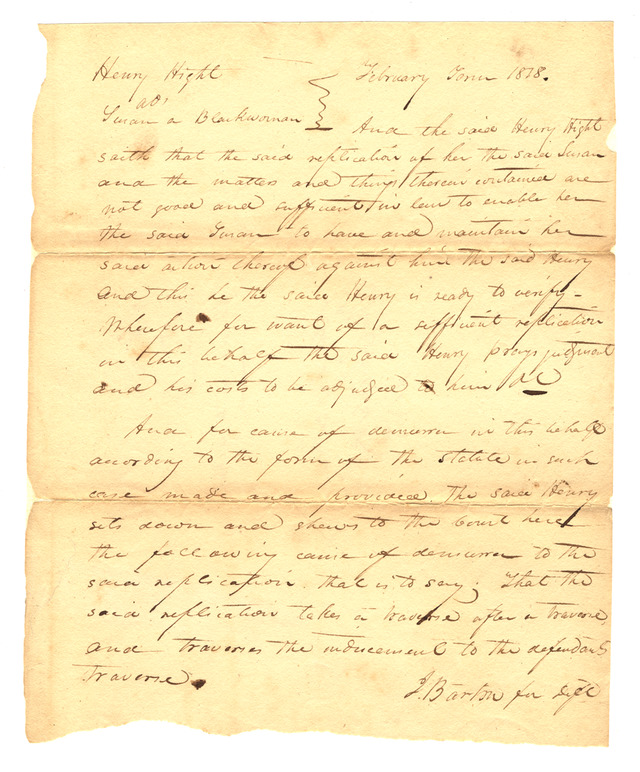 Henry Hight
ads
Susan a Blackwoman
February Term 1818.
And the said Henry Hight
saith that the said replication of her the said Susan
and the matters and things therein contained are
not good and sufficient in law to enable her
the said Susan to have and maintain her
said action thereof against him the said Henry
and this he the said Henry is ready to verify -
Wherefore for want of a sufficient replication
in this behalf the said Henry prays judgment
and his costs to be adjudged to him &C
And for cause of demurrer in this behalf
according to the form of the statute in such
case made and provided. The said Henry
sets down and shews to the Court here
the following cause of demurrer to the
said replication that is to say; That the
said replication takes a traverse after a traverse
and traverses the inducement to the defendants
traverse.
J. Barton for deft